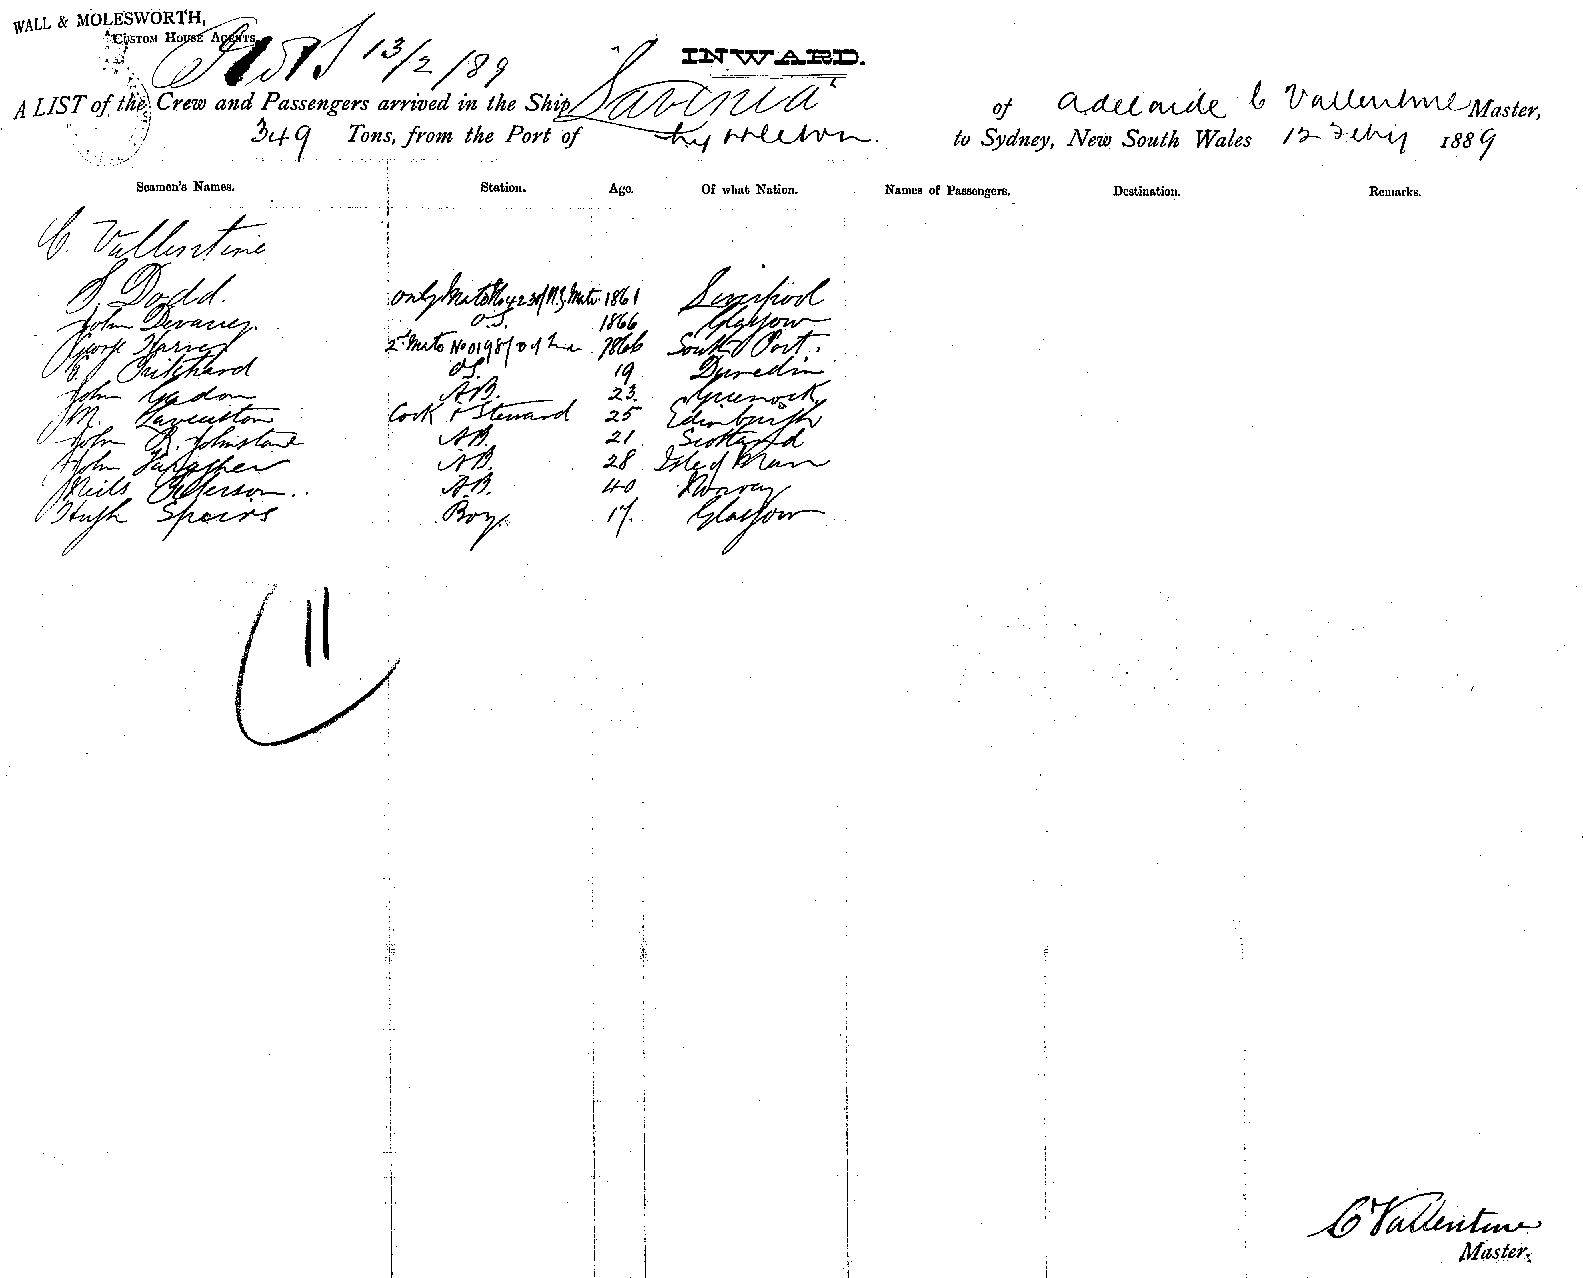 WALL & MOLESWORTH,
Custom House Agents
13/2/89
INWARD.
A LIST of the Crew and Passengers arrived in the Ship Lavinia of Adelaide C Vallentine Master,
349 Tons, from the Port of Lyttleton. to Sydney, New South Wales 12 Feby 1889
Seamen's Names. Station. Age. Of what Nation. Names of Passengers. Destination. Remarks.
C. Vallentine
Dodd. only Mate 1861 Liverpool
John Devaney. O.S. 1866 Glasgow
Harvey 2nd Mate 1866 South Port.
Pritchard O.S. 19 Dunedin
John Gadon A.B. 23. Greenock
M. Cook & Steward 25 Edinburgh
John Johnstone A.B. 21 Scotland
John A.B. 28 Isle of Man
Neils Peterson.. A.B. 40 Norway
Hugh Speirs Boy. 17. Glasgow
11
C Vallentine
Master.